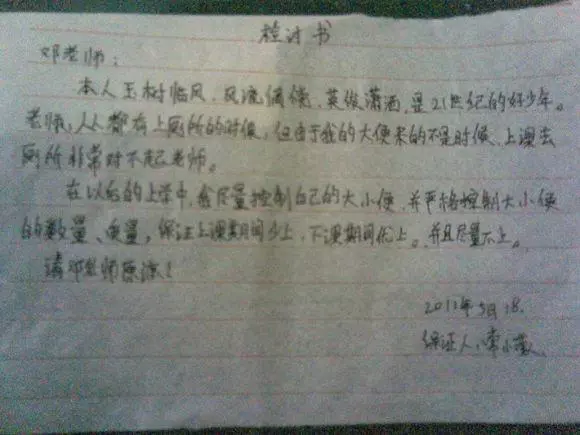 检讨书
邓老师:
本人玉树临风、风流倜傥、英俊潇洒,是21世纪的好少年。
老师,人人都有上厕所的时候,但由于我的大便来的不是时候,上课去
厕所非常对不起老师。
在以后的上学中,我尽量控制自己的大小便,并严格控制大小便
的数量、质量,保证上课期间少上,下课期间优上。并且尽量不上。
请邓老师原谅!
2011年5月18.
保证人:李小